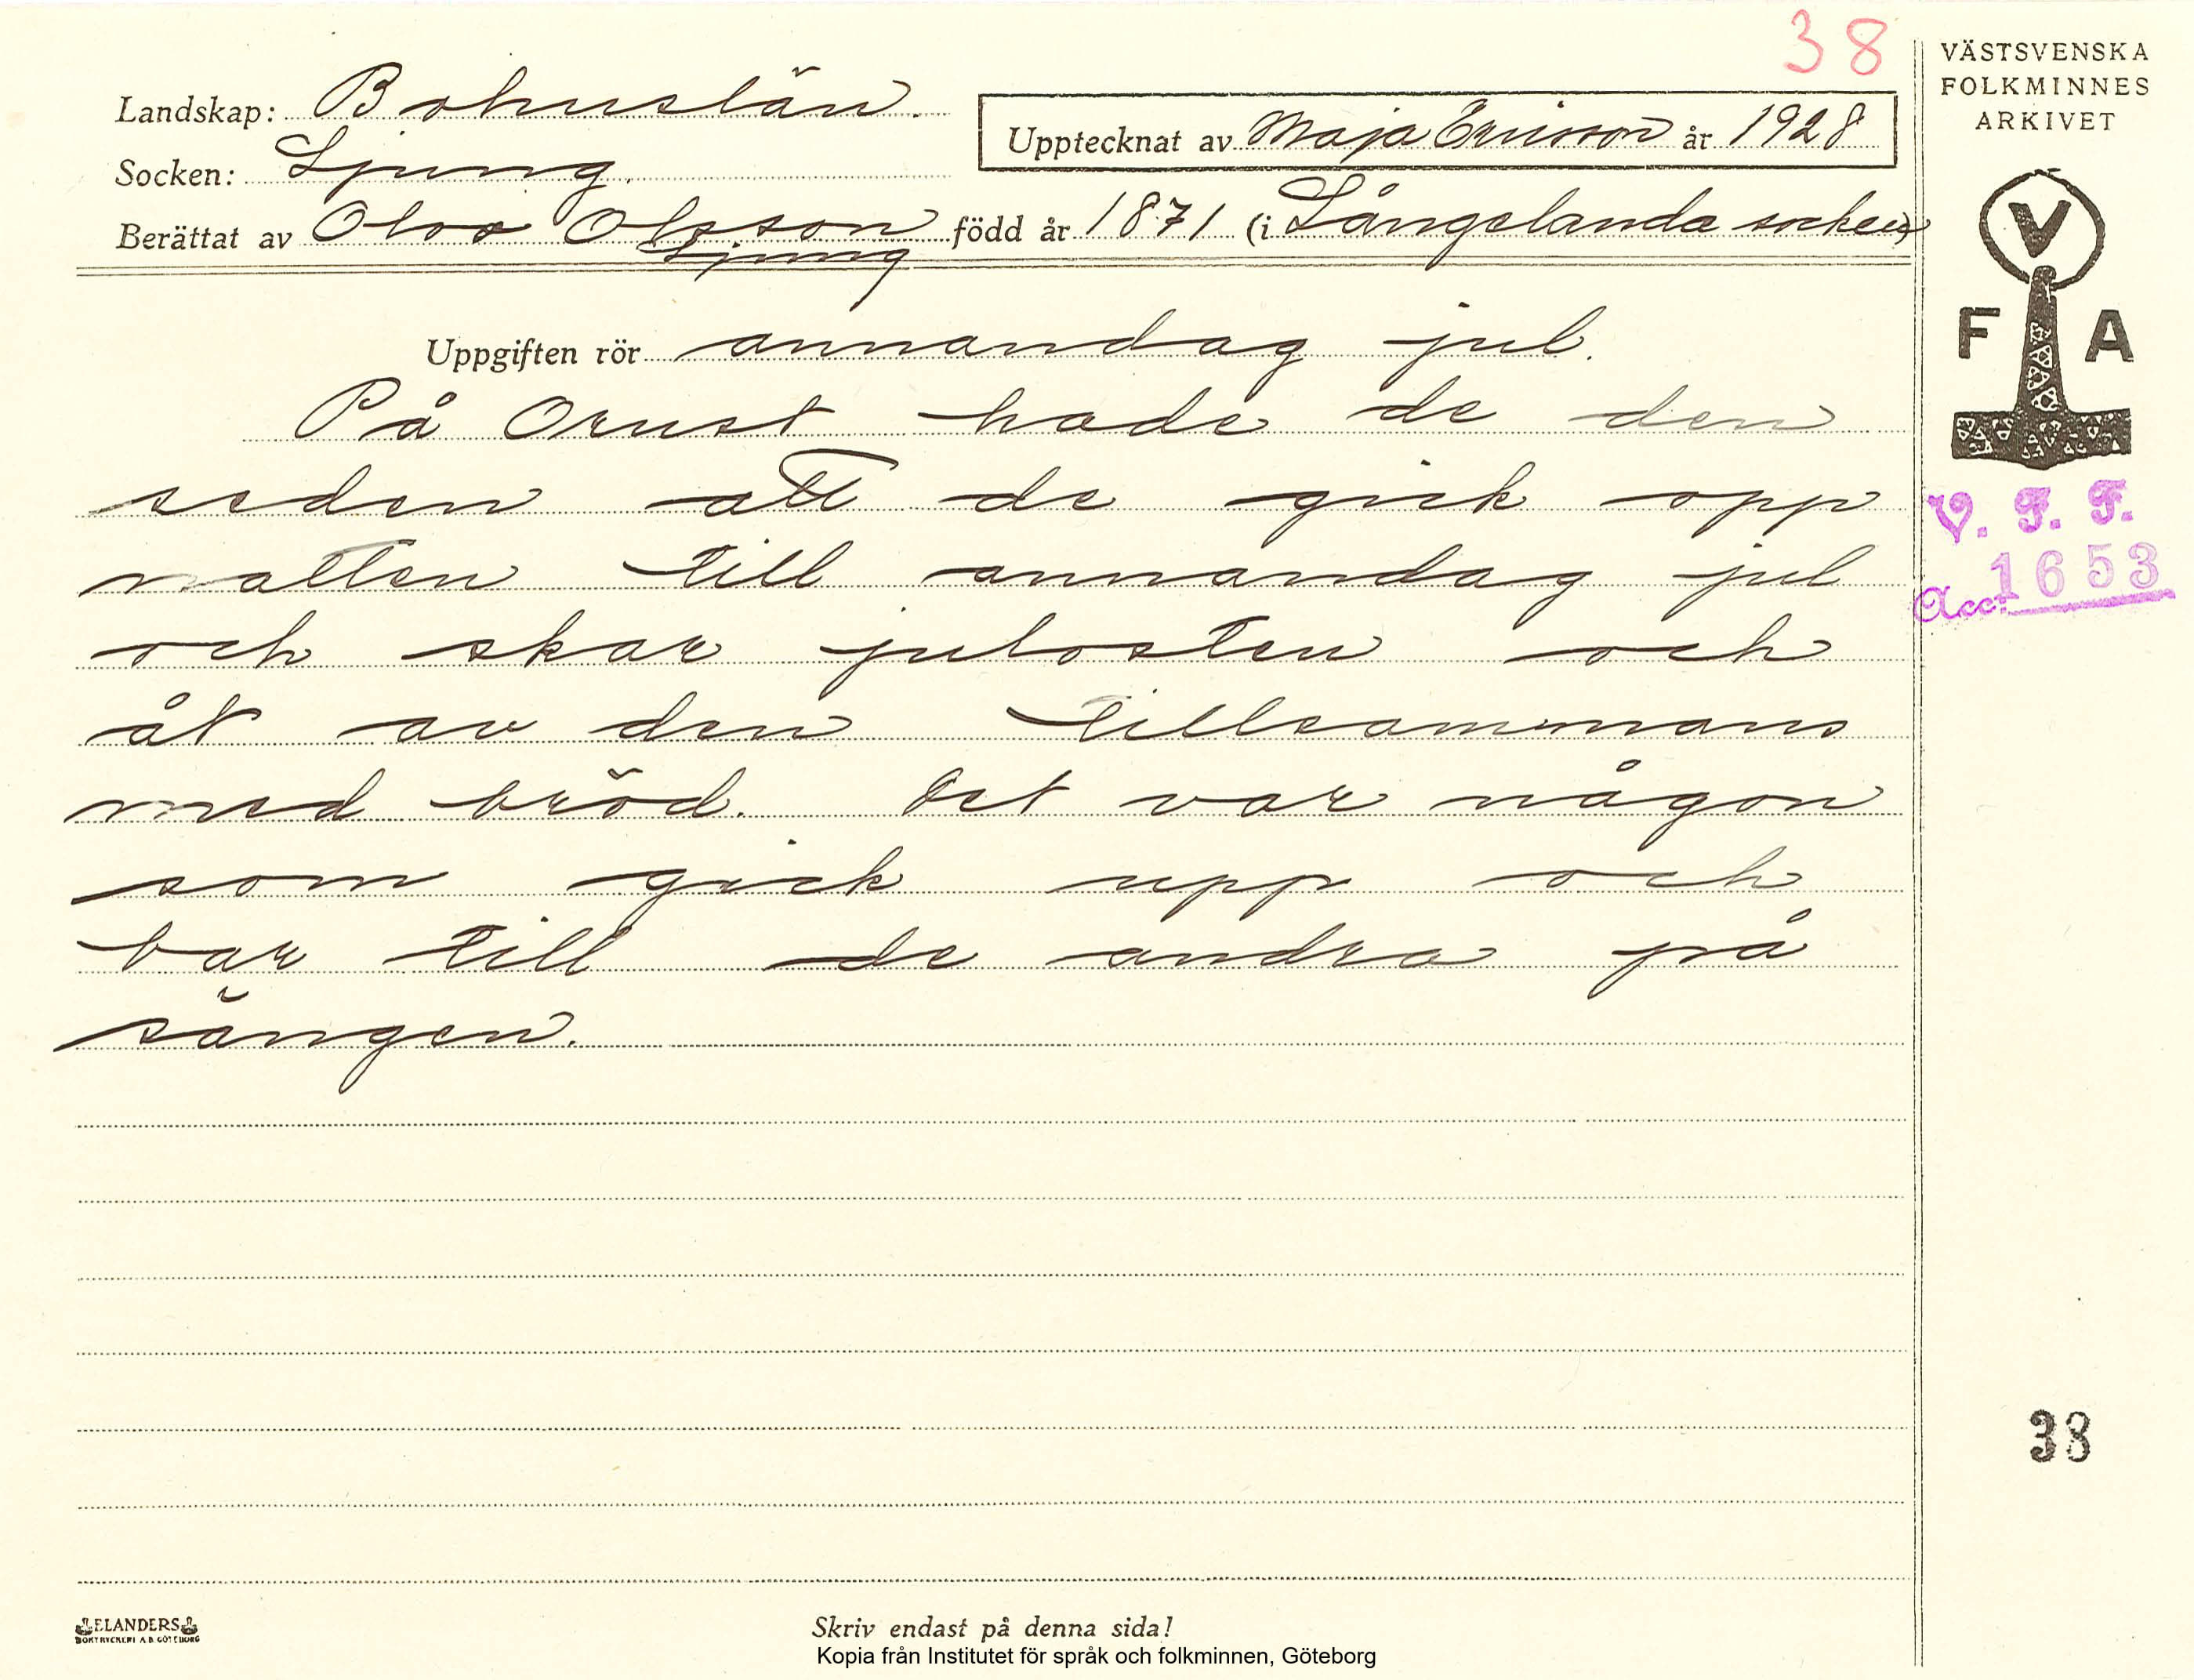 38
VÄSTSVENSKA
FOLKMINNES
ARKIVET
Landskap: Bohuslän.
Upptecknat av Maja Ericson år 1928
Socken: Ljung.
Berättat av Olva Olsson född år 1871 (i Långelanda socken)
Ljung
V
F A
Uppgiften rör annandag jul.
På Orust hade de den
seden att de gick opp
natten till annandag jul
och skar julosten och
åt av den tillsammans
med bröd. Det var någon
som gick upp och
bar till de andra på
sängen.
V. F. F.
Acc: 1653
38
ELANDERS
BOKTRYCKERI A.B. GÖTEBORG
Skriv endast på denna sida!
Kopia från Institutet för språk och folkminnen, Göteborg